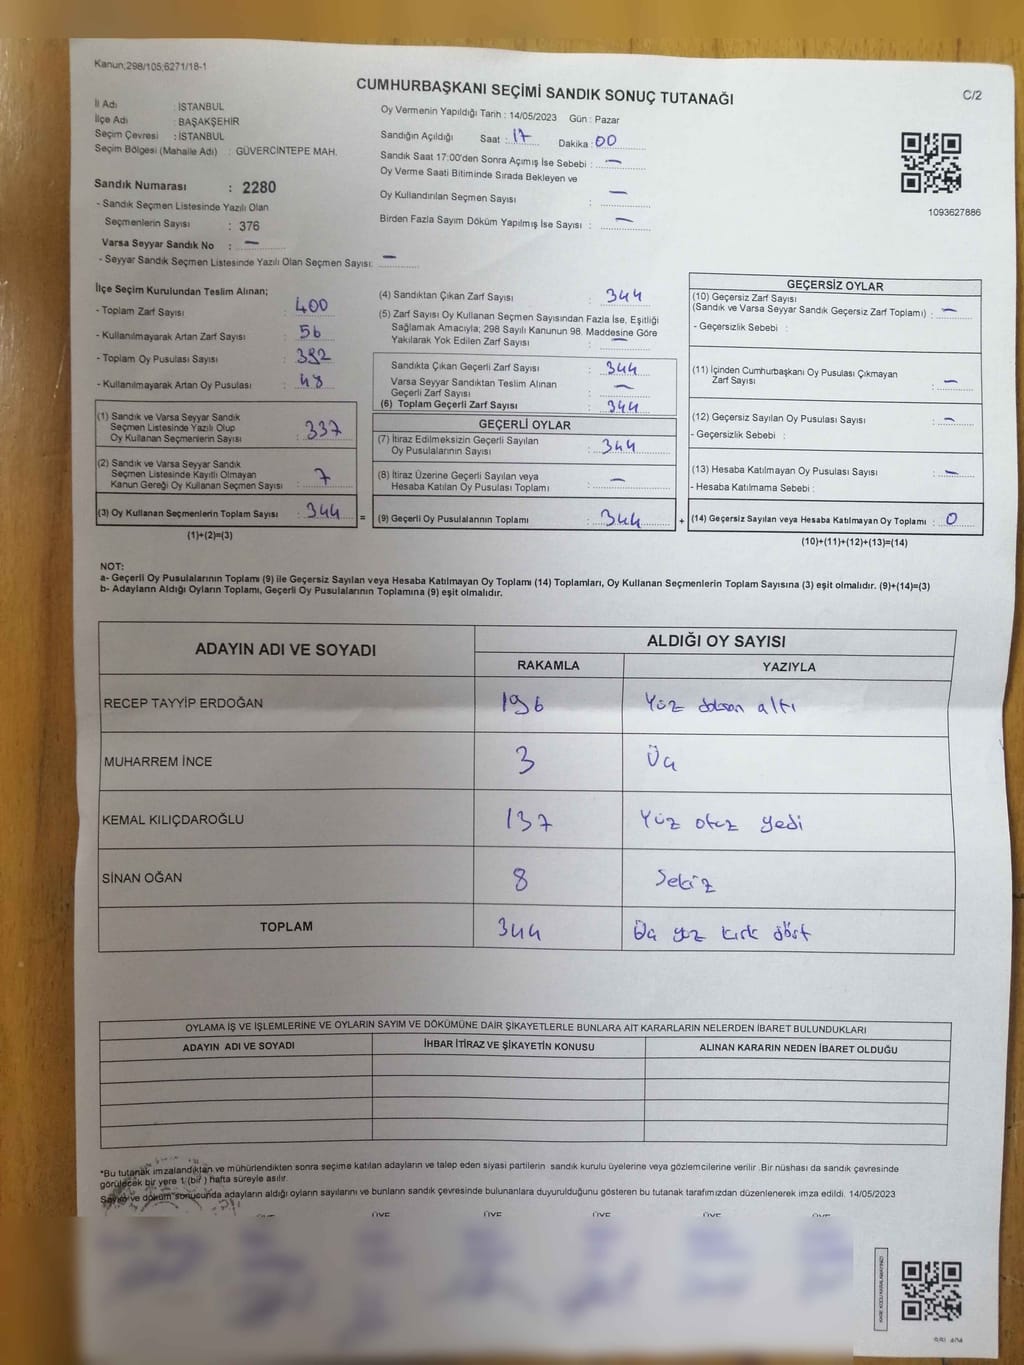 Kanun;298/105;6271/18-1
CUMHURBAŞKANI SEÇİMİ SANDIK SONUÇ TUTANAĞI
C/2
İl Adı : İSTANBUL
İlçe Adı : BAŞAKŞEHİR
Seçim Çevresi : İSTANBUL
Seçim Bölgesi (Mahalle Adı) : GÜVERCİNTEPE MAH.
Sandık Numarası : 2280
- Sandık Seçmen Listesinde Yazılı Olan
Seçmenlerin Sayısı : 376
Varsa Seyyar Sandık No : —
- Seyyar Sandık Seçmen Listesinde Yazılı Olan Seçmen Sayısı: —
Oy Vermenin Yapıldığı Tarih : 14/05/2023 Gün : Pazar
Sandığın Açıldığı Saat : 17 Dakika : 00
Sandık Saat 17:00'den Sonra Açımış İse Sebebi : —
Oy Verme Saati Bitiminde Sırada Bekleyen ve
Oy Kullandırılan Seçmen Sayısı : —
Birden Fazla Sayım Döküm Yapılmış İse Sayısı : —
1093627886
İlçe Seçim Kurulundan Teslim Alınan;
- Toplam Zarf Sayısı : 400
- Kullanılmayarak Artan Zarf Sayısı : 56
- Toplam Oy Pusulası Sayısı : 392
- Kullanılmayarak Artan Oy Pusulası : 48
(1) Sandık ve Varsa Seyyar Sandık
Seçmen Listesinde Yazılı Olup
Oy Kullanan Seçmenlerin Sayısı : 337
(2) Sandık ve Varsa Seyyar Sandık
Seçmen Listesinde Kayıtlı Olmayan
Kanun Gereği Oy Kullanan Seçmen Sayısı : 7
(3) Oy Kullanan Seçmenlerin Toplam Sayısı : 344 =
(1)+(2)=(3)
(4) Sandıktan Çıkan Zarf Sayısı : 344
(5) Zarf Sayısı Oy Kullanan Seçmen Sayısından Fazla İse, Eşitliği
Sağlamak Amacıyla; 298 Sayılı Kanunun 98. Maddesine Göre
Yakılarak Yok Edilen Zarf Sayısı : —
Sandıkta Çıkan Geçerli Zarf Sayısı : 344
Varsa Seyyar Sandıktan Teslim Alınan
Geçerli Zarf Sayısı : —
(6) Toplam Geçerli Zarf Sayısı : 344
GEÇERLİ OYLAR
(7) İtiraz Edilmeksizin Geçerli Sayılan
Oy Pusulalarının Sayısı : 344
(8) İtiraz Üzerine Geçerli Sayılan veya
Hesaba Katılan Oy Pusulası Toplamı : —
(9) Geçerli Oy Pusulalarının Toplamı : 344 +
GEÇERSİZ OYLAR
(10) Geçersiz Zarf Sayısı
(Sandık ve Varsa Seyyar Sandık Geçersiz Zarf Toplamı) : —
- Geçersizlik Sebebi :
(11) İçinden Cumhurbaşkanı Oy Pusulası Çıkmayan
Zarf Sayısı : —
(12) Geçersiz Sayılan Oy Pusulası Sayısı : —
- Geçersizlik Sebebi :
(13) Hesaba Katılmayan Oy Pusulası Sayısı : —
- Hesaba Katılmama Sebebi :
(14) Geçersiz Sayılan veya Hesaba Katılmayan Oy Toplamı : 0
(10)+(11)+(12)+(13)=(14)
NOT:
a- Geçerli Oy Pusulalarının Toplamı (9) ile Geçersiz Sayılan veya Hesaba Katılmayan Oy Toplamı (14) Toplamları, Oy Kullanan Seçmenlerin Toplam Sayısına (3) eşit olmalıdır. (9)+(14)=(3)
b- Adayların Aldığı Oyların Toplamı, Geçerli Oy Pusulalarının Toplamına (9) eşit olmalıdır.
ADAYIN ADI VE SOYADI ALDIĞI OY SAYISI
RAKAMLA YAZIYLA
RECEP TAYYİP ERDOĞAN 196 Yüz doksan altı
MUHARREM İNCE 3 Üç
KEMAL KILIÇDAROĞLU 137 Yüz otuz yedi
SİNAN OĞAN 8 Sekiz
TOPLAM 344 Üç yüz kırk dört
OYLAMA İŞ VE İŞLEMLERİNE VE OYLARIN SAYIM VE DÖKÜMÜNE DAİR ŞİKAYETLERLE BUNLARA AİT KARARLARIN NELERDEN İBARET BULUNDUKLARI
ADAYIN ADI VE SOYADI İHBAR İTİRAZ VE ŞİKAYETİN KONUSU ALINAN KARARIN NEDEN İBARET OLDUĞU
*Bu tutanak imzalandıktan ve mühürlendikten sonra seçime katılan adayların ve talep eden siyasi partilerin sandık kurulu üyelerine veya gözlemcilerine verilir .Bir nüshası da sandık çevresinde
görülecek bir yere 1 (bir ) hafta süreyle asılır.
Sayım ve döküm sonucunda adayların aldığı oyların sayılarını ve bunların sandık çevresinde bulunanlara duyurulduğunu gösteren bu tutanak tarafımızdan düzenlenerek imza edildi. 14/05/2023
ÜYE ÜYE ÜYE ÜYE ÜYE ÜYE